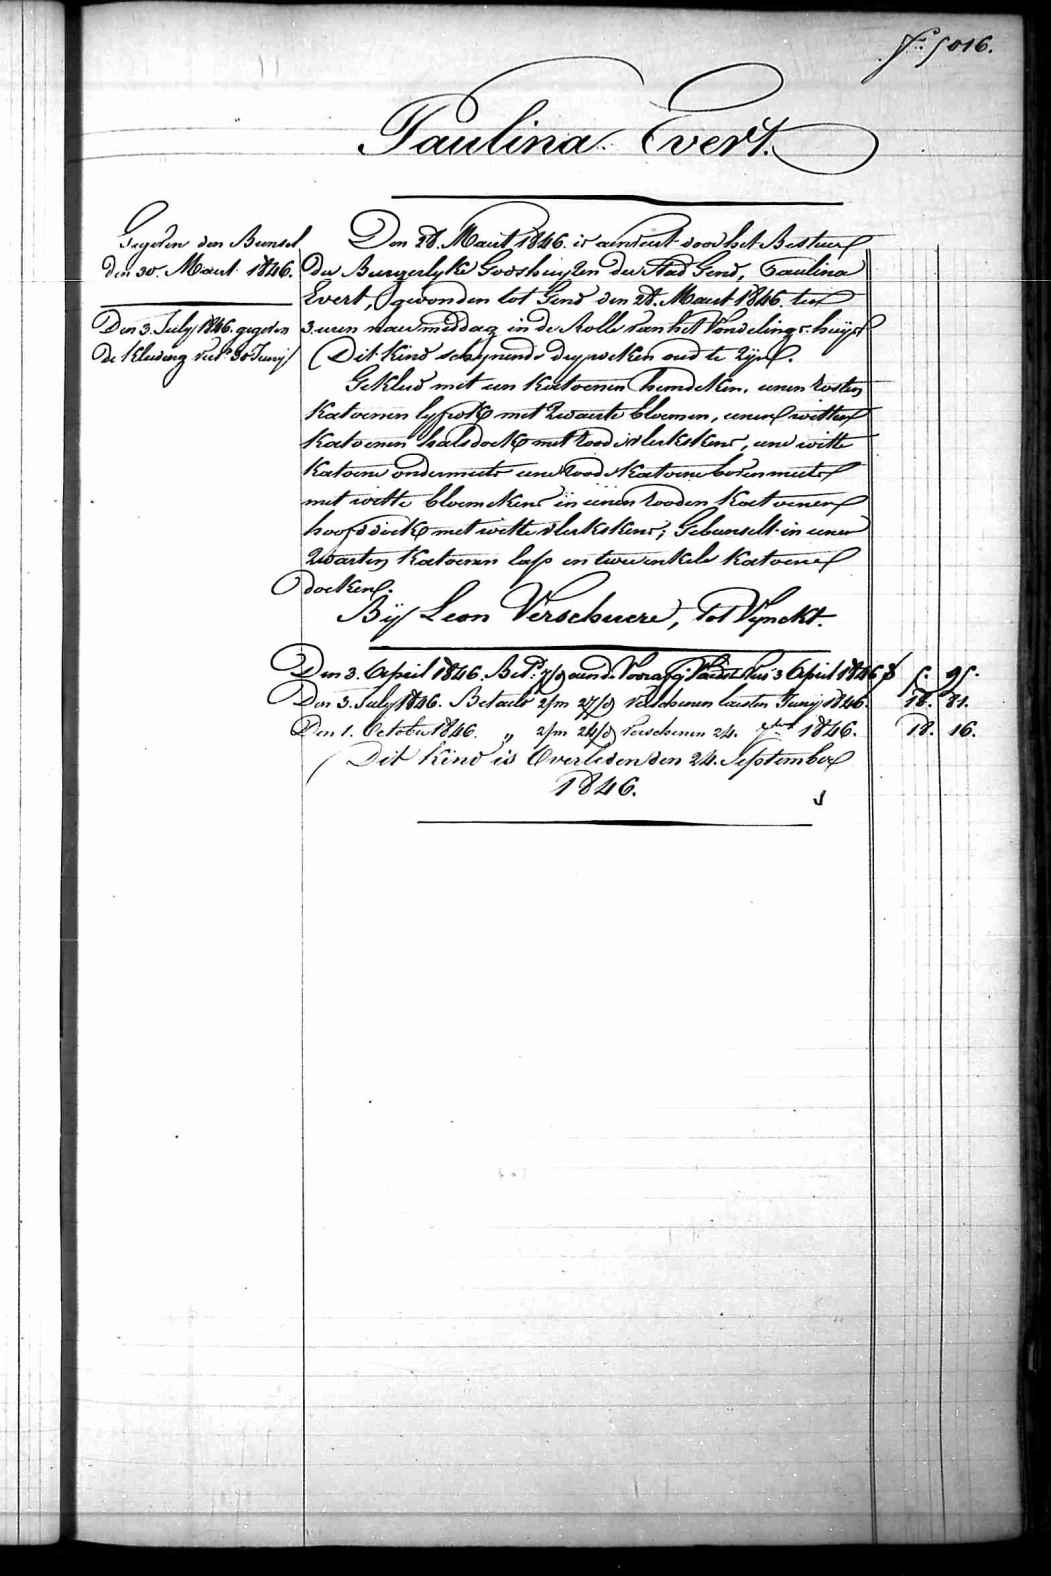 f.o 5016.
Paulina Evert.
Gegeven den Bunsel
den 30. Maart 1846.
Den 3. July 1846. gegeven
de Kleding
Den 28. Maart 1846. is aenveert door het Bestuer
der Burgerlyke Godshuyzen der stad Gend, Paulina
Evert, gevonden tot Gend den 28. Maart 1846. ten
3. uren naermiddag in de Rolle van het Vondelings-huys
Dit Kind schynende dry weken oud te zyn.
Gekleed met een Katoenen hemdeken, eenen rosten
Katoenen lyfrok met zwarte bloemen, eenen witten
Katoenen halsdoek met roode vlekskens, eene witte
Katoene ondermuts eene roode Katoene bovenmuts
met witte bloemekens in eenen rooden Katoenen
hoofddoek met witte vlekskens; Gebunselt in eenen
zwarten Katoenen lap en twee enkele Katoene
doeken.
By Leon Verschuere, tot Vynckt.
Den 3. April 1846. 3 April 1846 5. 95.
Den 3. July 1846. Betaeld 2/m 27/d verschenen laesten Juny 1846. 18. 81.
Den 1. October 1846. „ 2/m 24/d verschenen 24. 7ber 1846. 18. 16.
Dit Kind is Overleden den 24. September
1846.